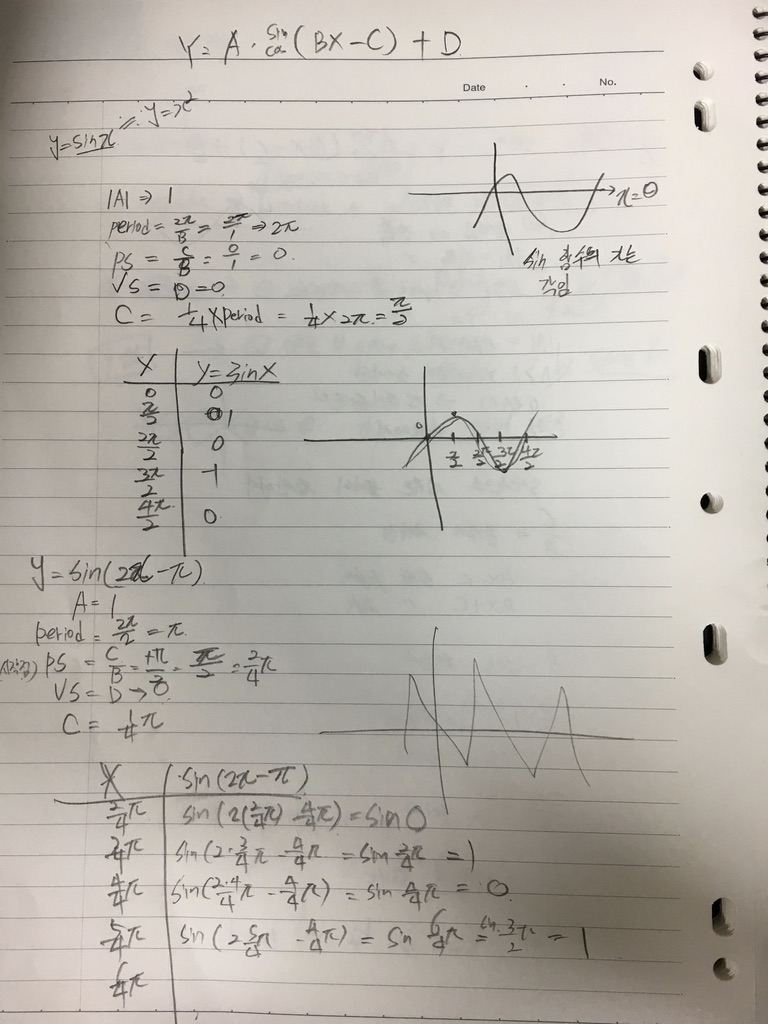 Y = A · sin cos (BX - C) + D
Date . . No.
y = sinx // y = x²
|A| ⇒ 1
period = 2π/B = 2π/1 ⇒ 2π
x = θ
PS = C/B = 0/1 = 0.
sin 함수의 x는
VS = D = 0.
각임
C = 1/4 × period = 1/4 × 2π = π/2
X Y = sinX
0 0
π/2 1
2π/2 0
3π/2 -1
4π/2 0
0 π/2 2π/2 3π/2 4π/2
Y = sin(2x - π)
A = 1
period = 2π/2 = π
PS = C/B = +π/2 = π/2 = 2/4π
VS = D → 0
C = 1/4π
X sin(2x - π)
2/4π sin(2(2/4π) - 4/4π) = sin 0
3/4π sin(2·3/4π - 4/4π = sin 2/4π = 1
4/4π sin(2·4/4π - 4/4π) = sin 4/4π = 0.
5/4π sin(2 5/4π - 4/4π) = sin 6/4π = sin 3π/2 = 1
6/4π